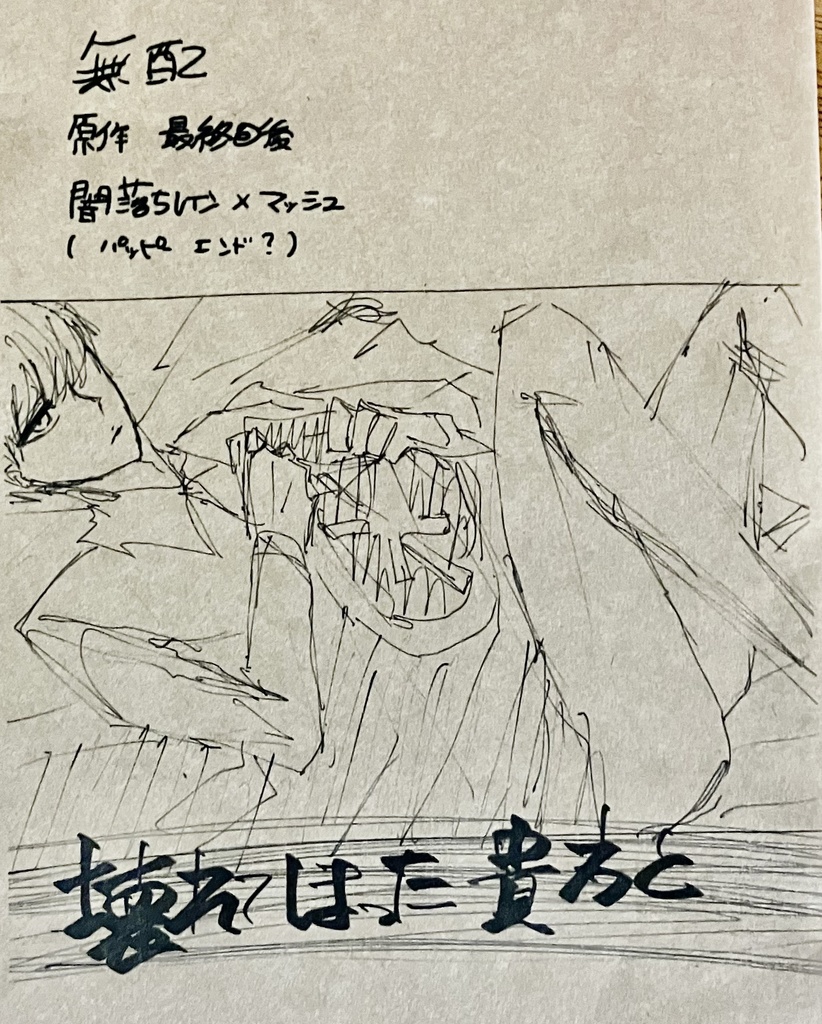 無配
原作 最終回後
闇落ちレイン×マッシュ
(ハッピーエンド?)
壊れてしまった貴方と